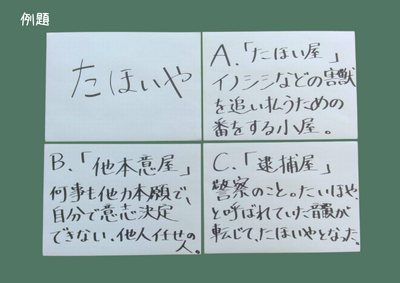 例題
たほいや
A.「たほい屋」
イノシシなどの害獣
を追い払うための
番をする小屋。
B.「他本意屋」
何事も他力本願で、
自分で意志決定
できない、他人任せの
人。
C.「逮捕屋」
警察のこと。たいほや、
と呼ばれていた音が
転じて、たほいやとなった。